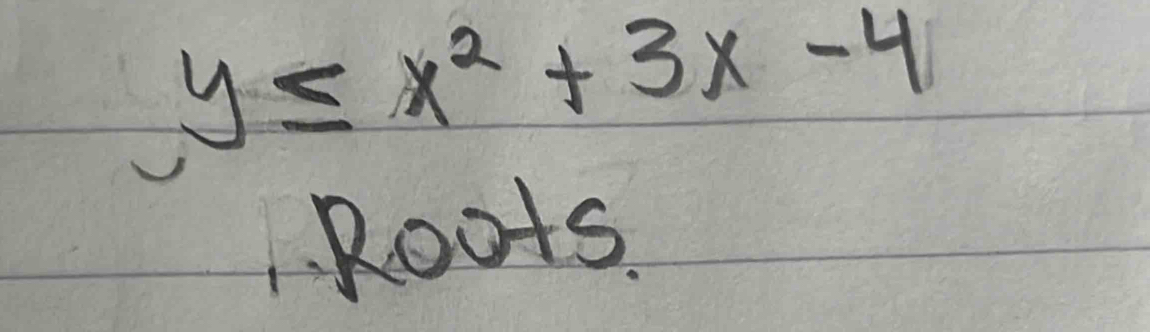 y ≤ x² + 3x - 4
Roots.